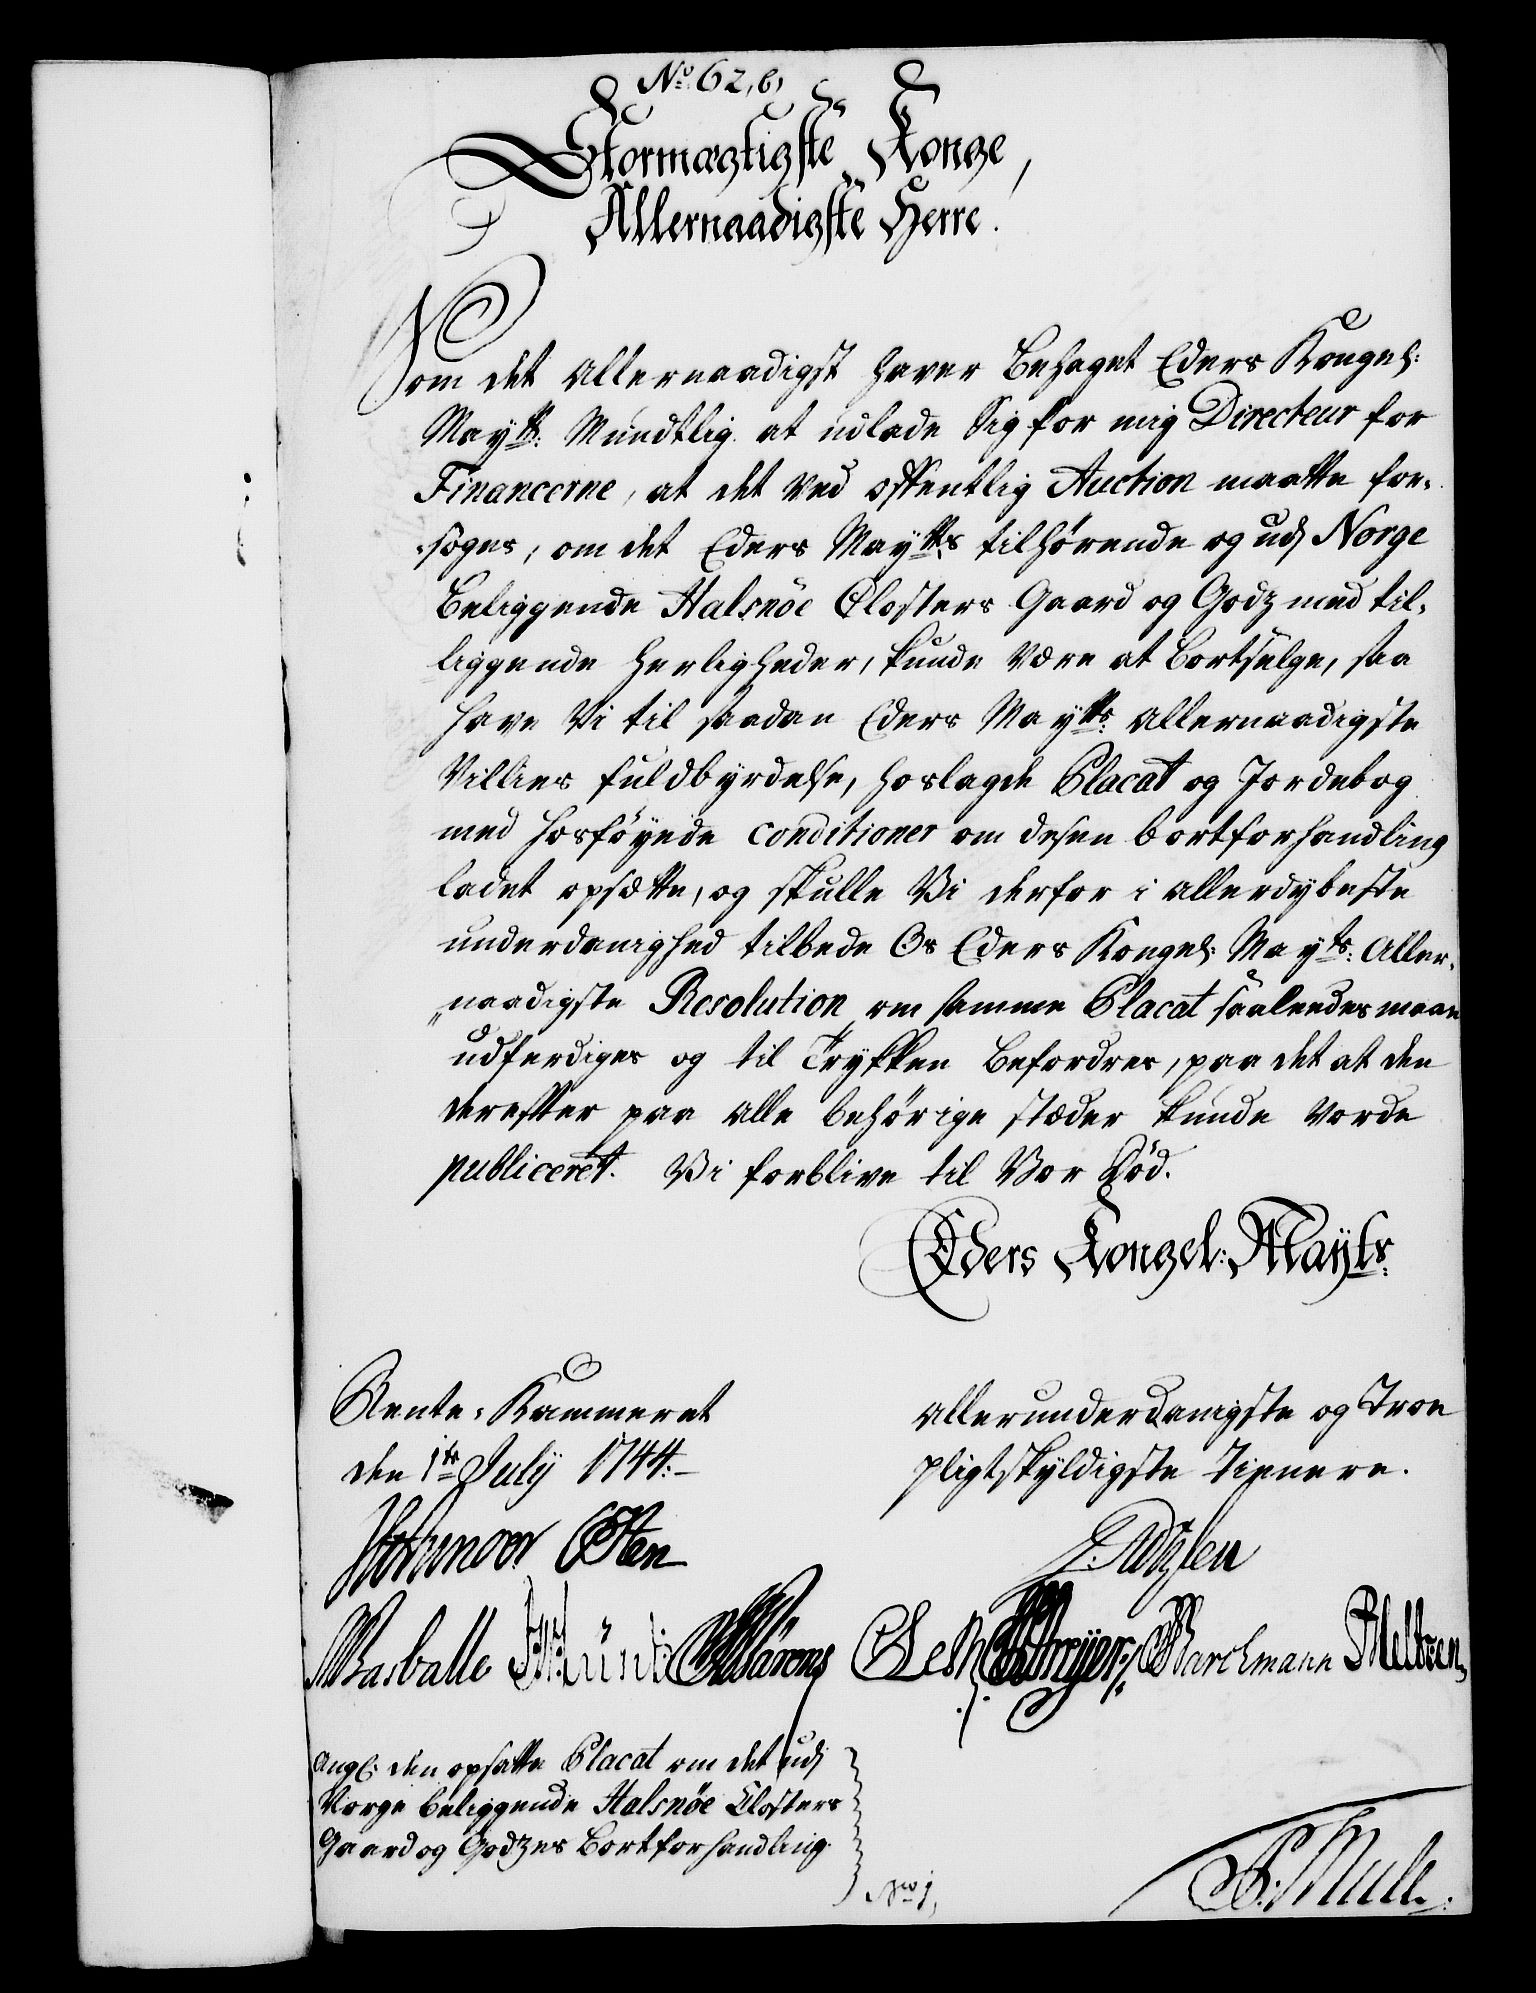 No. 62, b,
Stormægtigste Konge,
Allernaadigste Herre.
Som det Allernaadigst haver Behaget Eders Kongel:
Mayts: Mundtlig at udlade Sig for mig Directeur for
Financerne, at det ved offentlig Auction maatte for-
søges, om det Eders Mayts tilhørende og udj Norge
Beliggende Halsnöe Closters Gaard og Godz med til-
liggende Herligheder, kunde være at Bortsælge, saa
have Vi til saadan Eders Mayts: Allernaadigste
Villies fuldbyrdelse, hoslagde Placat og Jordebog
med hosföyede conditioner om dessen bortforhandling
ladet opsætte, og skulle Vi derfor i allerdybeste
underdanighed tilbede Os Eders Kongel: Mayts: Aller-
naadigste Resolution, om samme Placat saaledes maae
udferdiges og til Trykken befordres, paa det at den
derefter paa alle behörige stæder kunde vorde
publiceret. Vi forblive til Vor Död.
Eders Kongel: Mayts:
Rente-Kammeret
den 1te July 1744.
allerunderdanigste og Troe
pligtskyldigste Tienere.
Osten
Wasballe Münt Wärens Barchmann Meltzen
Angl: den opsatte Placat om det udj
Norge beliggende Halsnöe Closters
Gaard og Godzes Bortforhandling.
No 1,
Mule